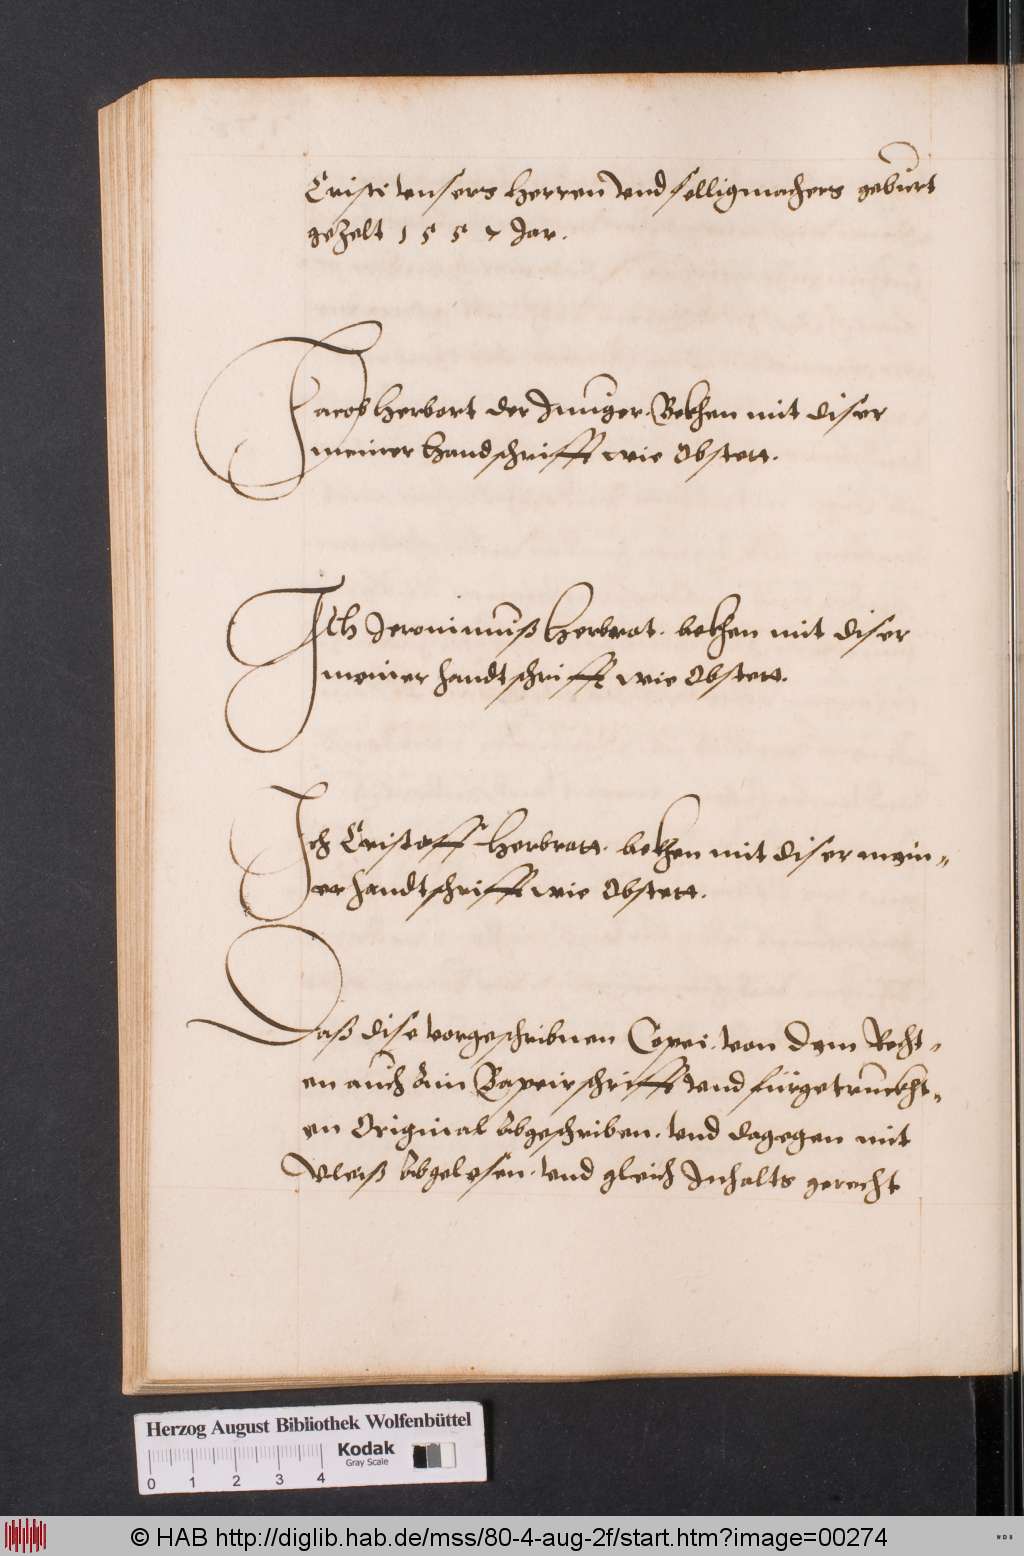 Cristi vnsers Herren vnd selligmachers geburt
gezelt 1557 Jar.
Jacob Herbort der Junger. Bekhen mit diser
meiner handschrifft wie Obstett.
Ich Jeronimuß Herbrot. bekhen mit diser
meiner handtschrifft wie Obstett.
Ich Cristoff Herbrott. bekhen mit diser mein„
er handtschrifft wie Obstett.
Daß dise vorgeschribnen Copei. von dem Recht„
en auch Ain Bapeir schrifft vnd fürgetruckht„
en Original Abgeschriben. vnd dagegen mit
Vleiß Abgelesen. vnd gleich Inhalts gerecht
Herzog August Bibliothek Wolfenbüttel
Kodak
Gray Scale
0 1 2 3 4
© HAB http://diglib.hab.de/mss/80-4-aug-2f/start.htm?image=00274